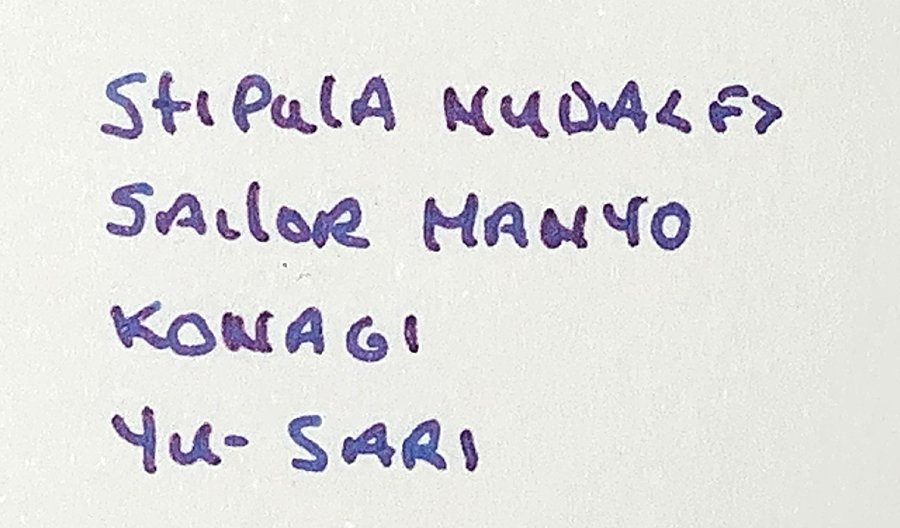 Stipula NUDA<F>
SAilOR MANYO
KONAGI
YU-SARI